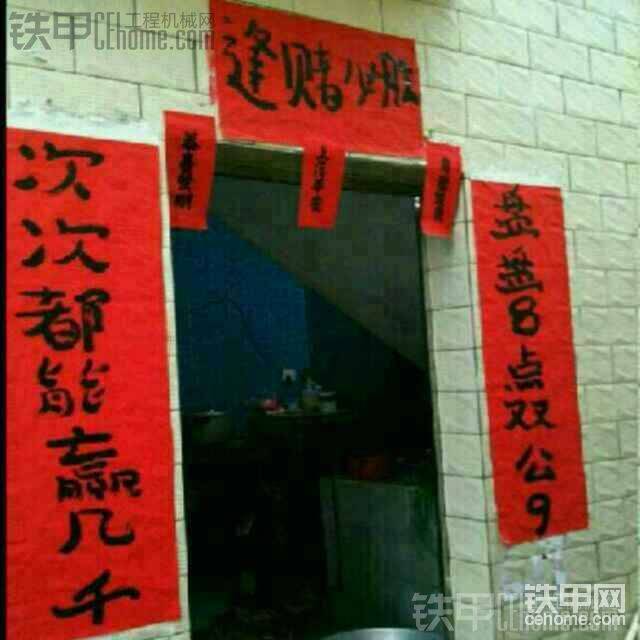 铁甲 工程机械网
Cehome.com
逢赌必胜
恭喜发财
次次都能赢几千
盘盘8点双公9
铁甲网
cehome.com